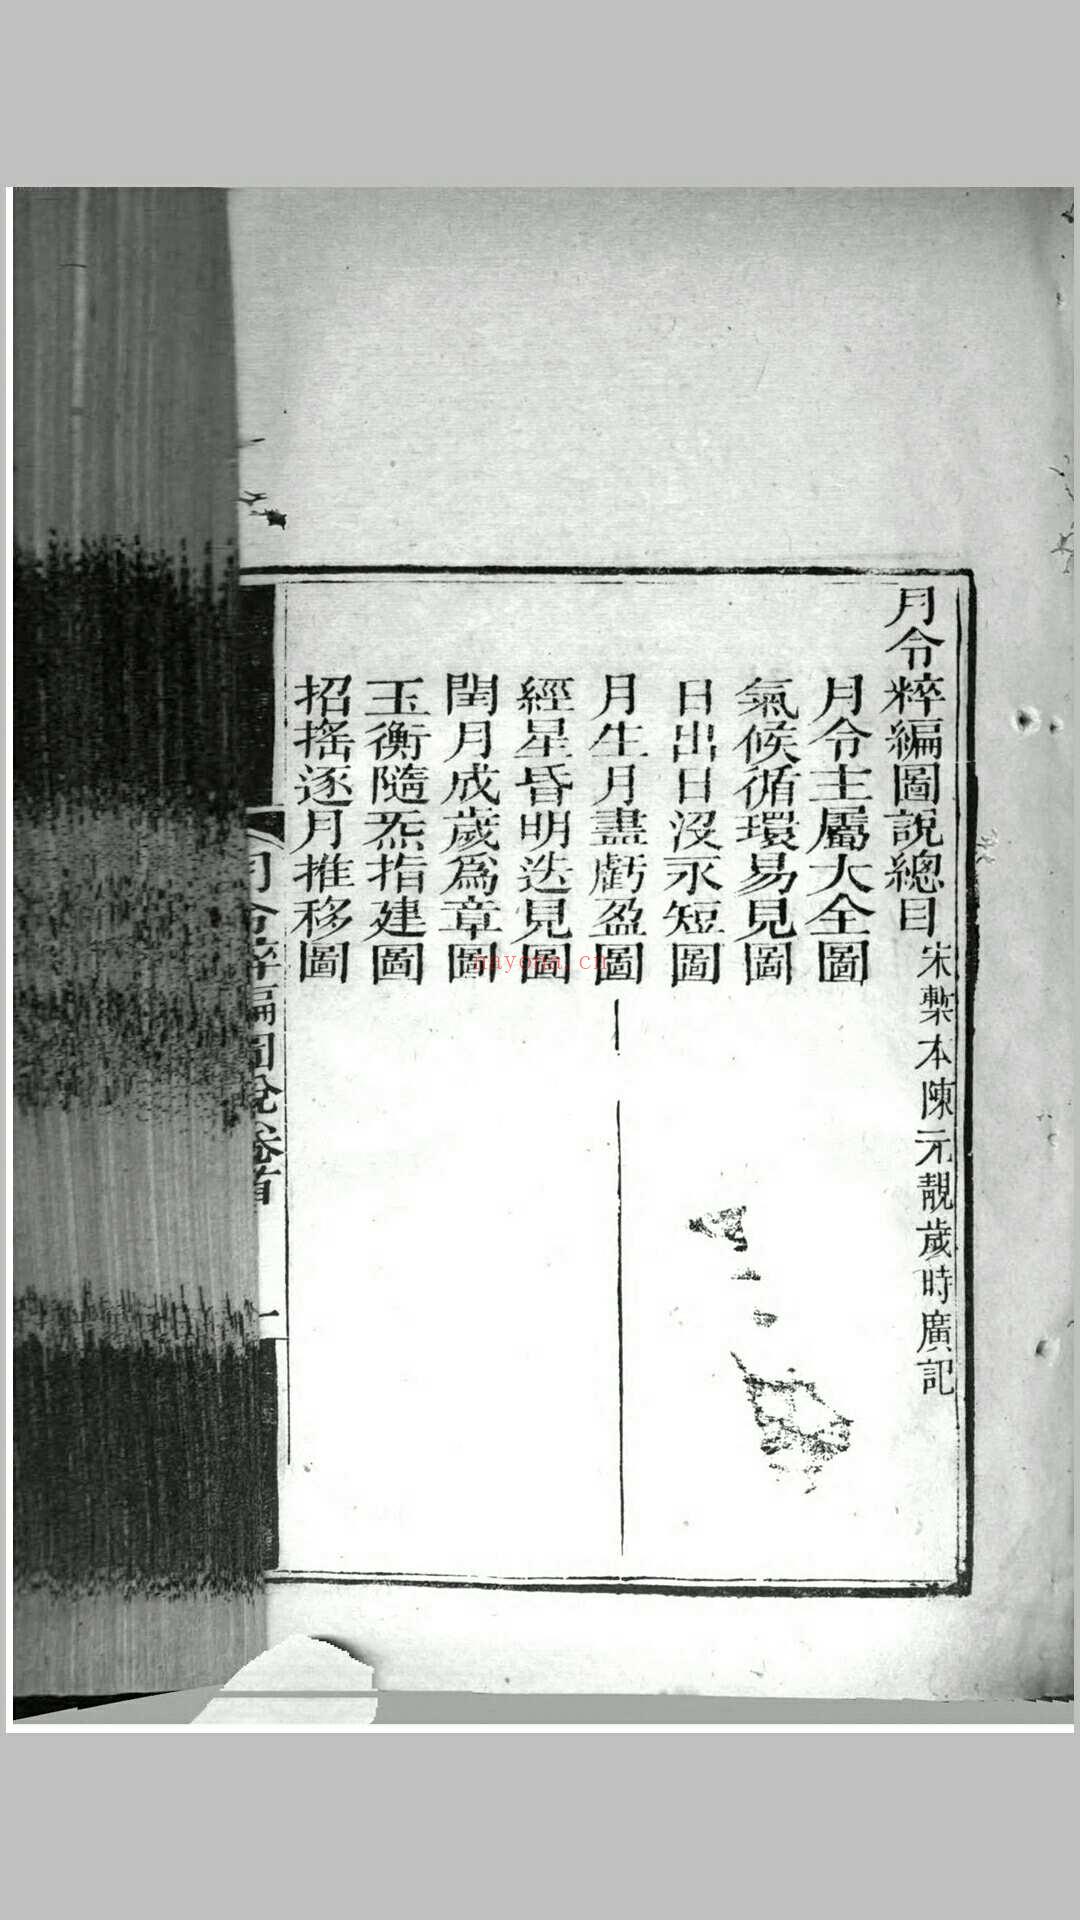 月令粹編圖說總目宋槧本陳元靚歲時廣記
月令主屬大全圖
氣候循環易見圖
日出日沒永短圖
月生月盡虧盈圖
經星昏明迭見圖
閏月成歲爲章圖
玉衡隨炁指建圖
招搖逐月推移圖
月令粹編圖說卷首
一
nayona.cn